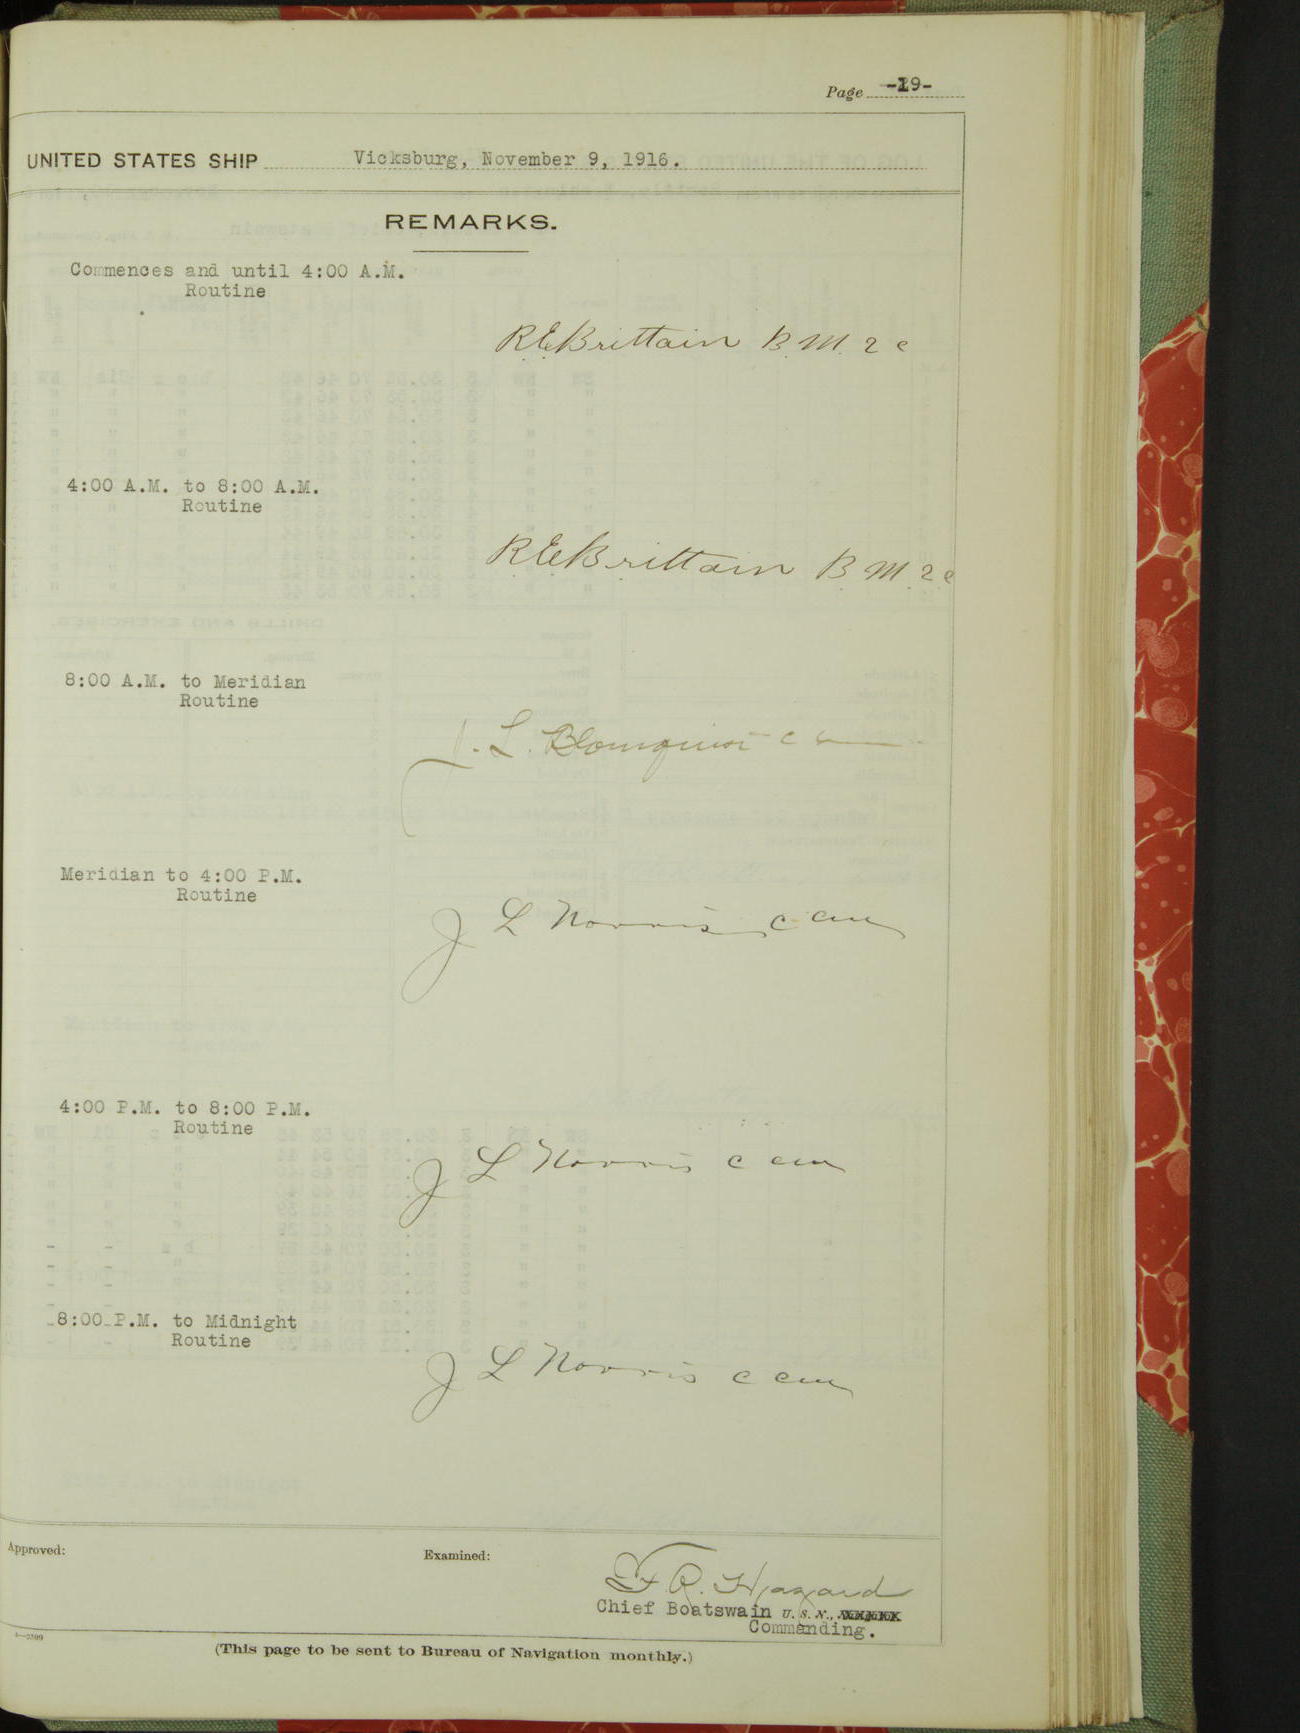 Page -19-
UNITED STATES SHIP Vicksburg, November 9, 1916.
REMARKS.
Commences and until 4:00 A.M.
Routine
R.E. Brittain B.M. 2 c
4:00 A.M. to 8:00 A.M.
Routine
R.E. Brittain B.M. 2 c
8:00 A.M. to Meridian
Routine
J. L. Blomquist
Meridian to 4:00 P.M.
Routine
J L Norris c cm
4:00 P.M. to 8:00 P.M.
Routine
J L Norris c cm
8:00 P.M. to Midnight
Routine
J L Norris c cm
Approved:
Examined:
F R. Hazard
Chief Boatswain U. S. N.,
Commanding.
(This page to be sent to Bureau of Navigation monthly.)